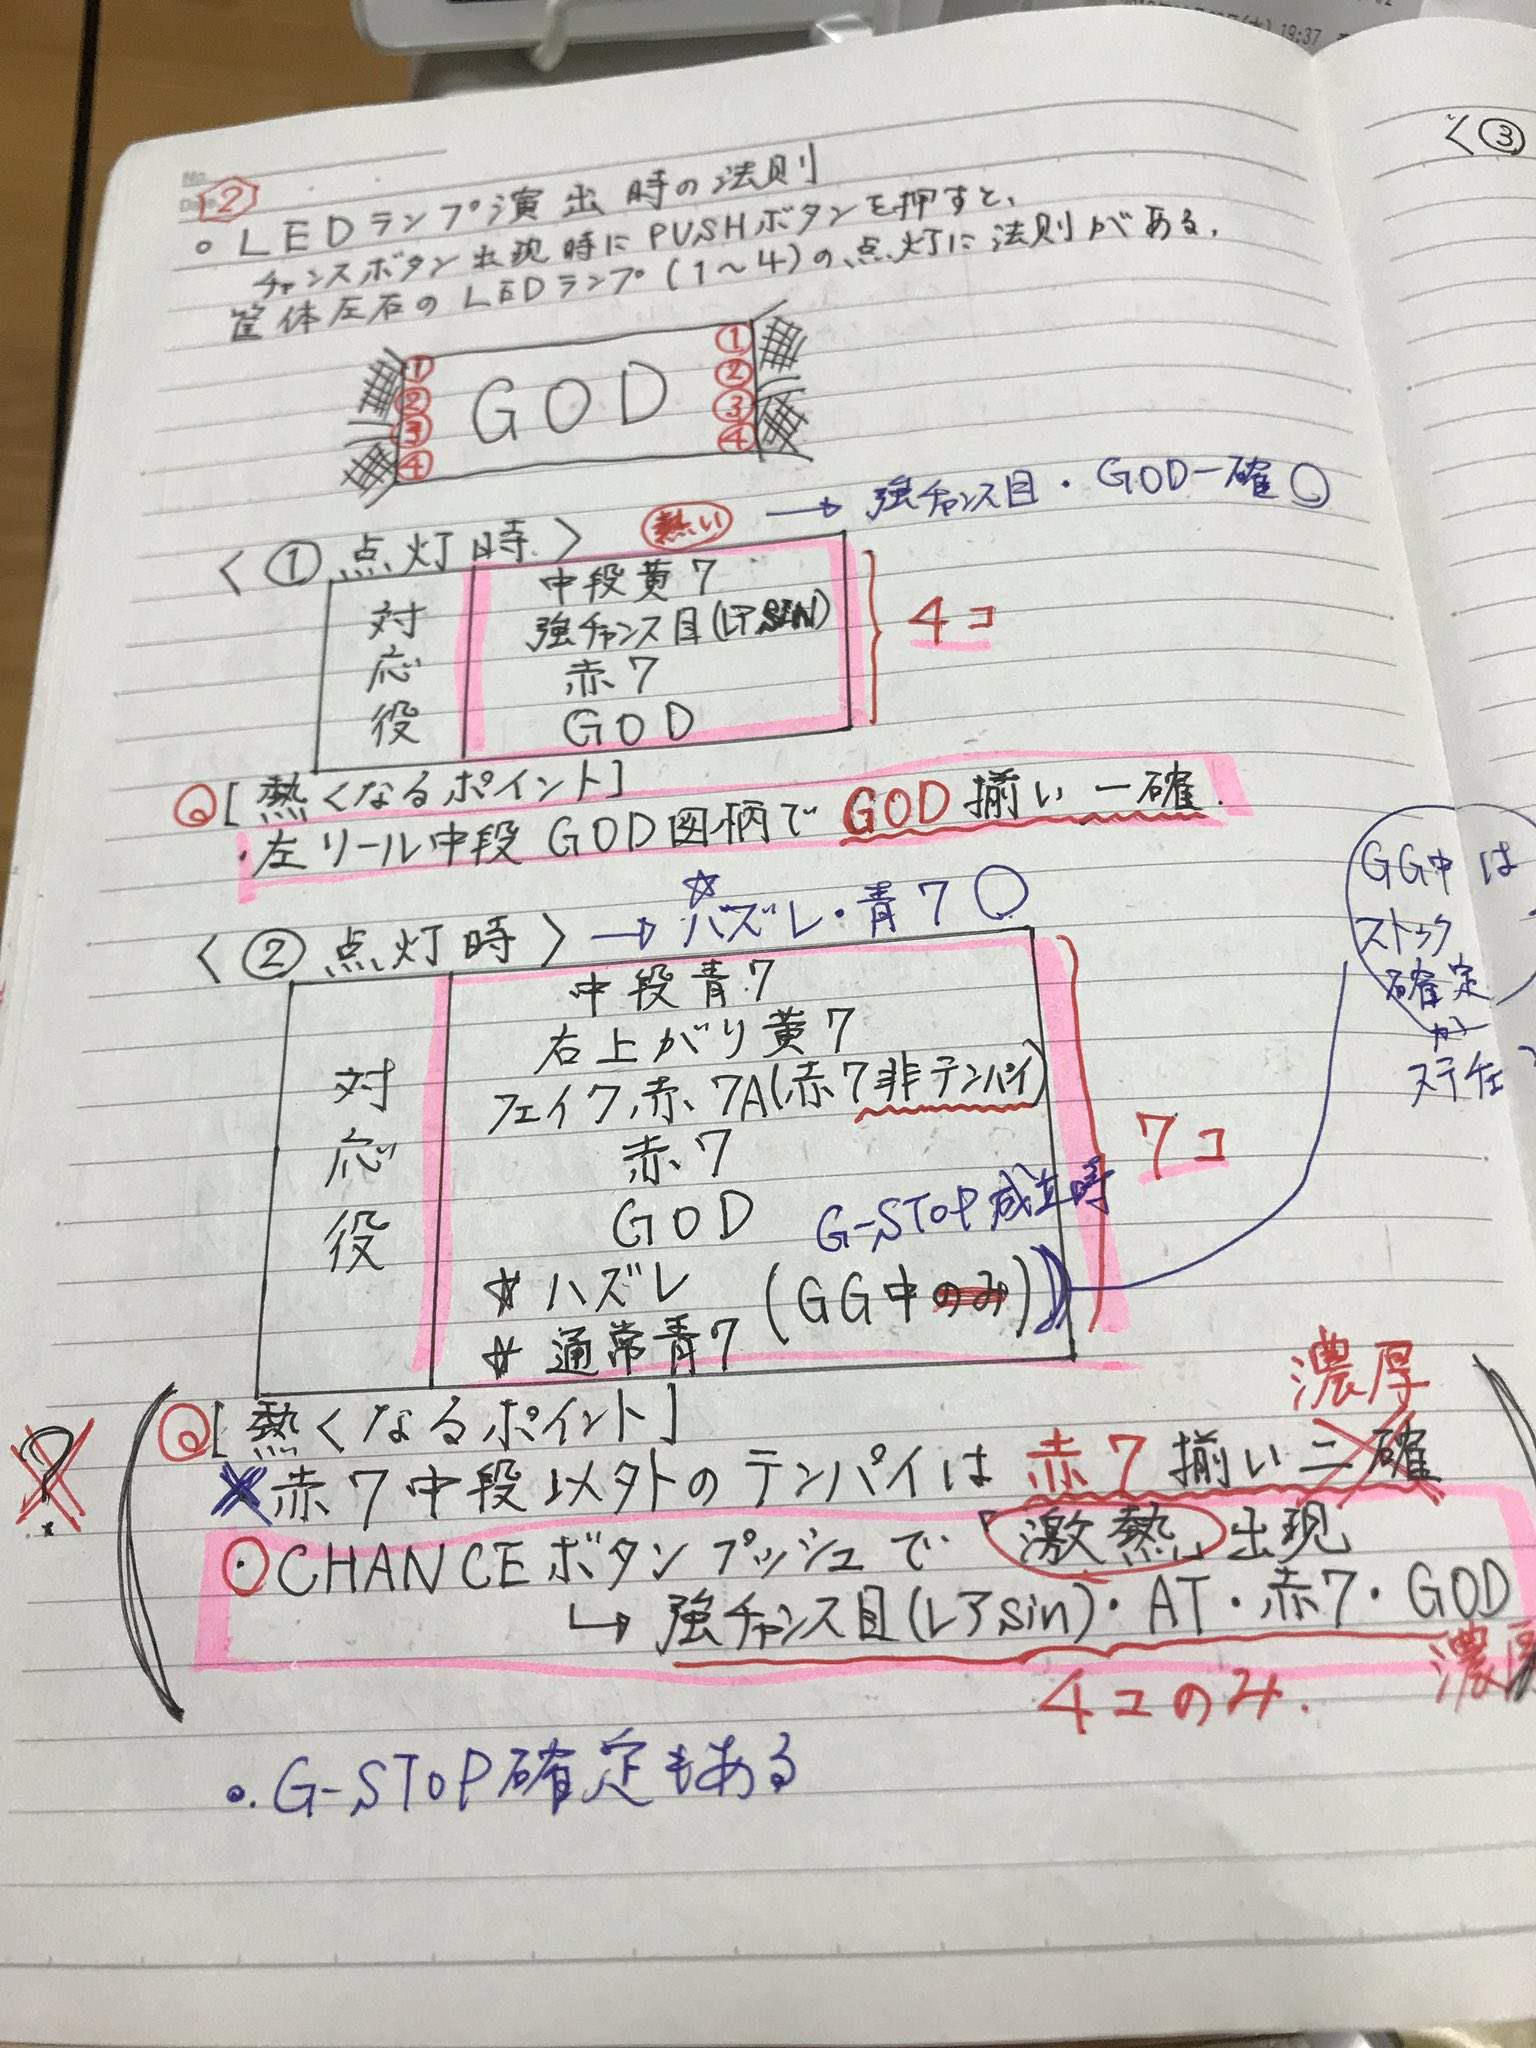 ②
。LEDランプ演出時の法則
チャンスボタン出現時にPUSHボタンを押すと、
筐体左右のLEDランプ(1〜4)の点灯に法則がある。
① GOD ①
② ②
③ ③
④ ④
<①点灯時> 熱い → 強チャンス目・GOD一確○
対応役
中段黄7
強チャンス目(レアSIN)
赤7
GOD
4コ
[熱くなるポイント]
・左リール中段GOD図柄でGOD揃い一確.
<②点灯時> → ☆ハズレ・青7○
対応役
中段青7
右上がり黄7
フェイク赤7A(赤7非テンパイ)
赤7
GOD
G-STOP成立時
☆ハズレ
(GG中のみ)
☆通常青7
7コ
GG中は
ストック
確定
か
<③
?
[熱くなるポイント]
濃厚
赤7中段以外のテンパイは赤7揃い二確
・CHANCEボタンプッシュで「激熱」出現
↳強チャンス目(レアsin)・AT・赤7・GOD
濃厚
4コのみ.
。G-STOP確定もある
19:37